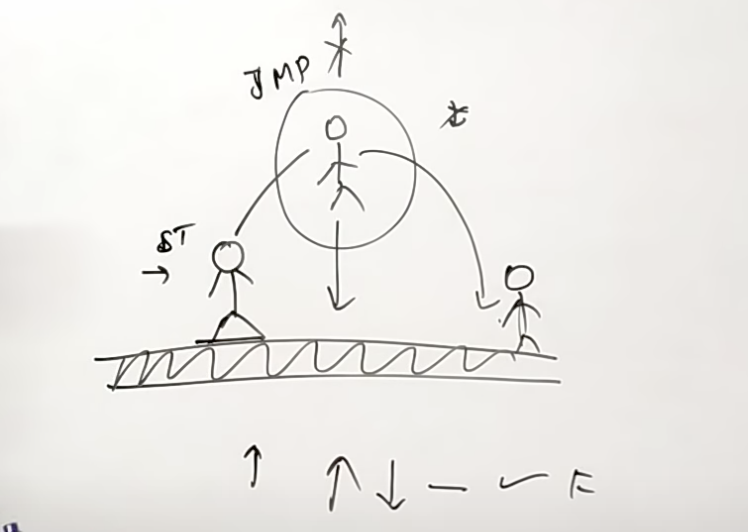 JMP
ST